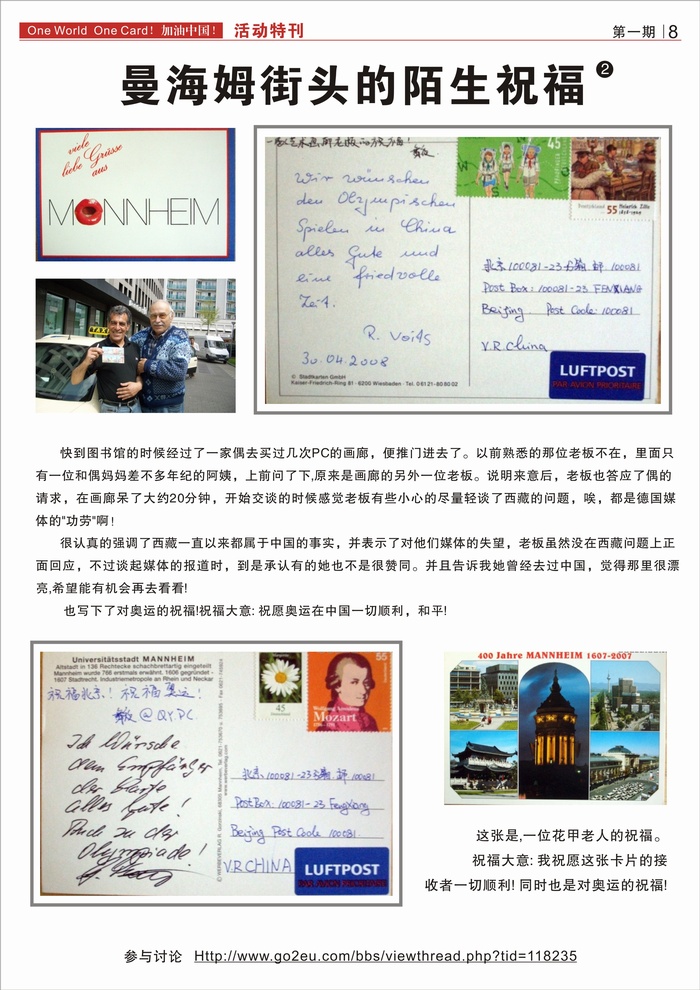 One World One Card! 加油中国! 活动特刊
第一期 8
曼海姆街头的陌生祝福 2
viele
liebe Grüsse
aus
MONNHEIM
45
55
Deutschland
Heinrich Zille
1858-1929
Wir wünschen
den Olympischen
Spielen in China
alles Gute und
eine friedvolle
Zeit.
R. Voits
30.04.2008
© Stadtkarten GmbH
Kaiser-Friedrich-Ring 81 · 6200 Wiesbaden · Tel. 06121-80 80 02
北京 100081-23 信箱 邮 100081
Post Box: 100081-23 FENXIANG
Beijing Post Code: 100081
V.R.China
LUFTPOST
PAR AVION PRIORITAIRE
快到图书馆的时候经过了一家偶去买过几次PC的画廊，便推门进去了。以前熟悉的那位老板不在，里面只
有一位和偶妈妈差不多年纪的阿姨，上前问了下,原来是画廊的另外一位老板。说明来意后，老板也答应了偶的
请求，在画廊呆了大约20分钟，开始交谈的时候感觉老板有些小心的尽量轻谈了西藏的问题，唉，都是德国媒
体的"功劳"啊！
很认真的强调了西藏一直以来都属于中国的事实，并表示了对他们媒体的失望，老板虽然没在西藏问题上正
面回应，不过谈起媒体的报道时，到是承认有的她也不是很赞同。并且告诉我她曾经去过中国，觉得那里很漂
亮,希望能有机会再去看看!
也写下了对奥运的祝福!祝福大意: 祝愿奥运在中国一切顺利，和平!
Universitätsstadt MANNHEIM
Altstadt in 136 Rechtecke schachbrettartig eingeteilt
Mannheim wurde 766 erstmals erwähnt, 1606 gegründet -
1607 Stadtrecht. Industriemetropole an Rhein und Neckar
祝福北京! 祝福奥运!
@QY.DC
Ich wünsche
dem Empfänger
der Karte
alles Gute!
Auch zu der
Olympiade!
45
55
Wolfgang Amadeus
Mozart
北京 100081-23 信箱 邮 100081
Post Box: 100081-23 Fengxiang
Beijing Post Code: 100081.
V.R.CHINA
LUFTPOST
PAR AVION PRIORITAIRE
400 Jahre MANNHEIM 1607-2007
这张是,一位花甲老人的祝福。
祝福大意: 我祝愿这张卡片的接
收者一切顺利! 同时也是对奥运的祝福!
参与讨论 Http://www.go2eu.com/bbs/viewthread.php?tid=118235